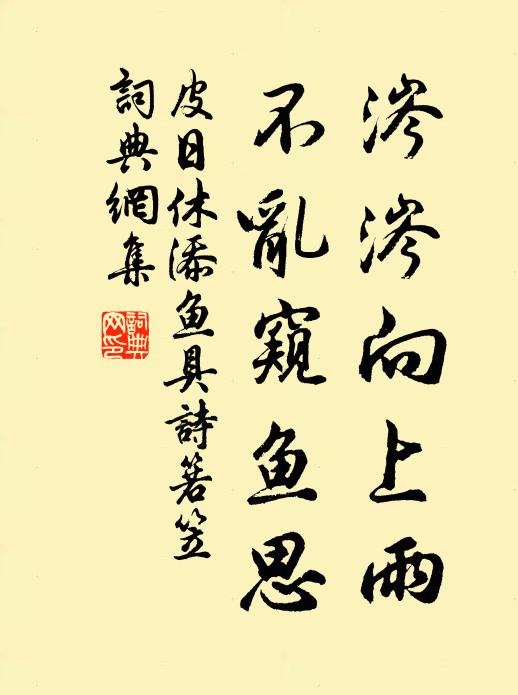 涔涔向上雨
不亂窺魚思
皮日休添魚具詩箬笠
詞典網集
詞典網印